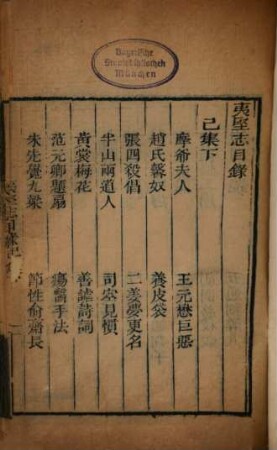 Bayerische
Staatsbibliothek
München
夷堅志目錄
己集下
摩耶夫人 王元懋巨惡
趙氏馨奴 養皮袋
張四殺倡 二姜夢更名
半山兩道人 司家見懊
黃裳梅花 善謔詩詞
范元卿題扇 瘍醫手法
朱先覺九梁 節性俞齋長